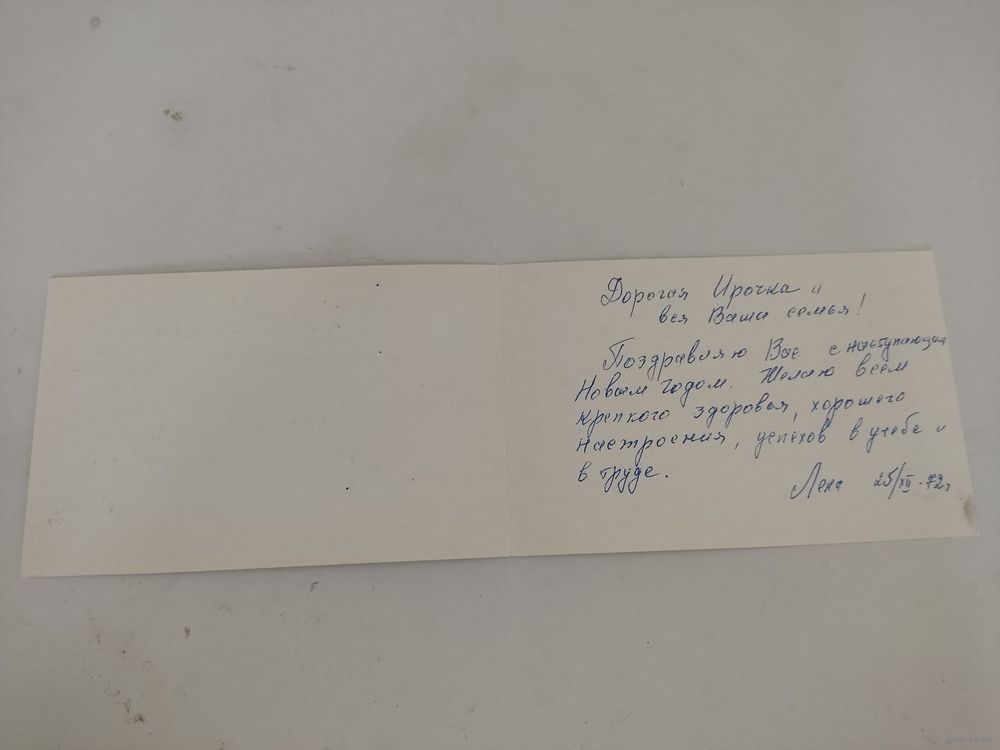 Дорогая Ирочка и
вся Ваша семья!
Поздравляю Вас с наступающим
Новым годом. Желаю всем
крепкого здоровья, хорошего
настроения, успехов в учебе и
в труде.
Лена 25/XII-72г.